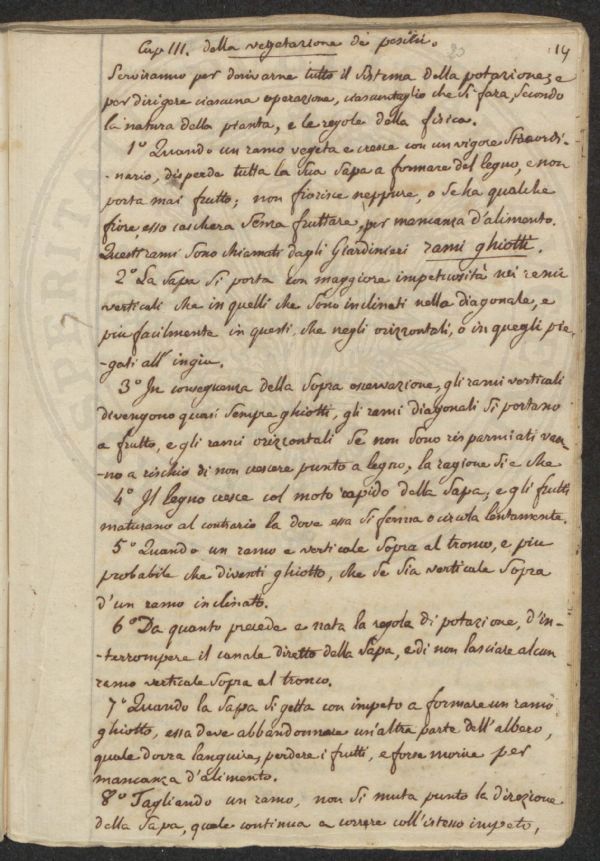 Cap III. della vegetazione de' pesili. 14
Serviranno per derivarne tutto il sistema della potazione, e
per dirigere ciascuna operazione, ciascuntaglio che si farà, secondo
la natura della pianta, e le regole della fisica.
1º Quando un ramo vegeta e cresce con un vigore straordi-
-nario, disperde tutta la sua sapa a formare del legno, e non
porta mai frutto; non fiorisce neppure, o se ha qualche
fiore, esso cascherà senza fruttare, per mancanza d'alimento.
Questi rami sono chiamati dagli Giardinieri rami ghiotti.
2º La sapa si porta con maggiore impetuosità nei rami
verticali che in quelli che sono inclinati nella diagonale, e
piu facilmente in questi, che negli orizzontali, o in quegli pie-
gati all' ingiu.
3º In conseguenza della sopra osservazione, gli rami verticali
divengono quasi sempre ghiotti, gli rami diagonali si portano
a frutto, e gli rami orizzontali se non sono risparmiati van-
-no a rischio di non crescere punto a legno, la ragione si e che
4º Il legno cresce col moto rapido della sapa, e gli frutti
maturano al contrario la dove essa si ferma o circola lentamente.
5º Quando un ramo e verticale sopra al tronco, e piu
probabile che diventi ghiotto, che se sia verticale sopra
d'un ramo inclinato.
6º Da quanto precede e nata la regola di potazione, d'in-
-terrompere il canale diretto della sapa, e di non lasciare alcun
ramo verticale sopra al tronco.
7º Quando la sapa si getta con impeto a formare un ramo
ghiotto, essa deve abbandonnare un'altra parte dell'albero,
quale dovra languire, perdere i frutti, e forse morire per
mancanza d'alimento.
8º Tagliando un ramo, non si muta punto la direzione
della sapa, quale continua a correre coll'istesso impeto,